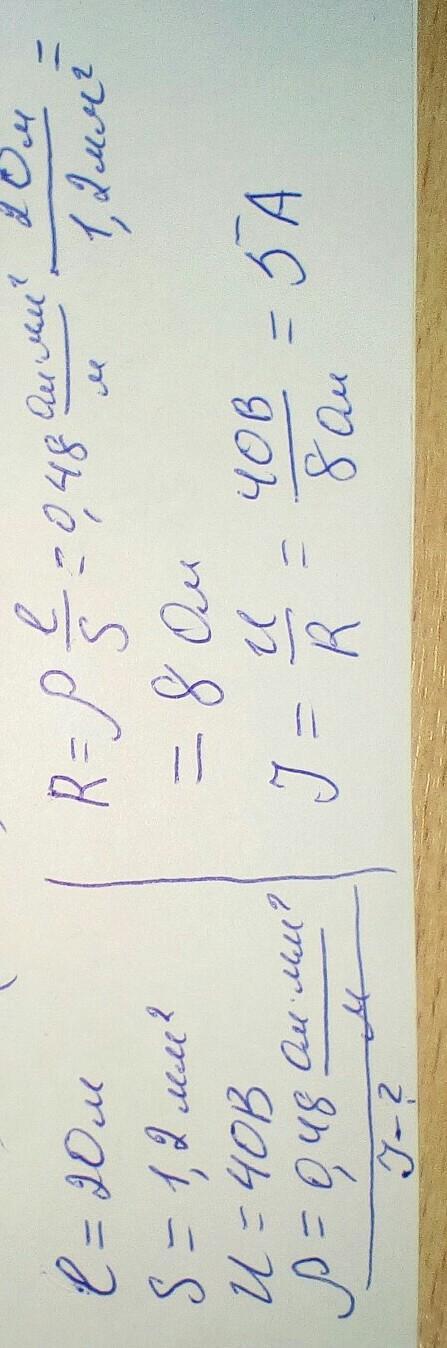 l = 20м
S = 1,2 мм²
U = 40В
ρ = 0,48 Ом·мм²/м
I - ?
R = ρ l/S = 0,48 Ом·мм²/м · 20м/1,2мм² =
= 8 Ом
I = U/R = 40В/8 Ом = 5А